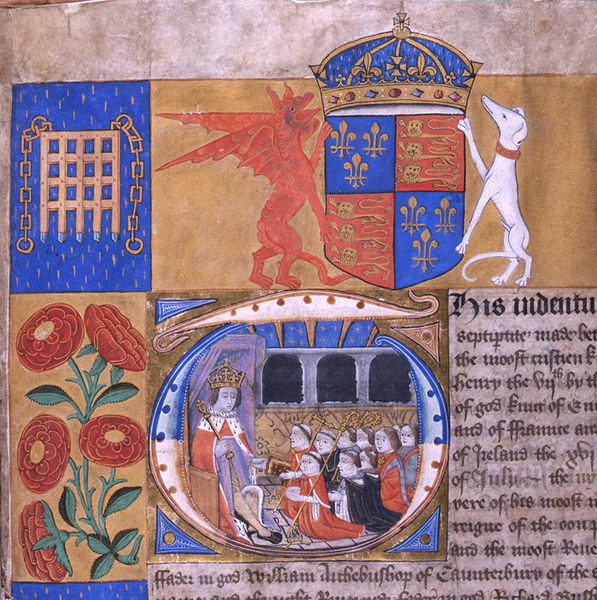 This indentu
septiptite made bet
the moost cristien k
henry the vijth by th
of god king of En
and of ffraunce and
of Ireland the xvi
of July the ny
yere of his moost n
reigne of the oon p
and the moost Reue
ffader in god William Archebisshop of Caunterbury of the s